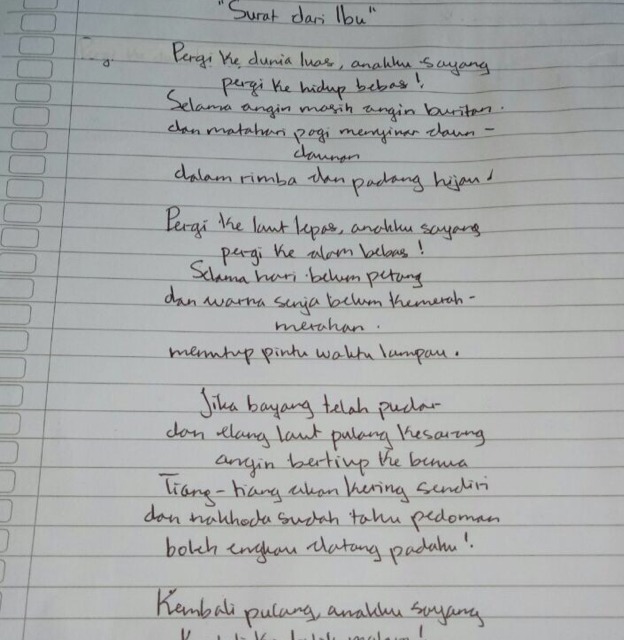 "Surat dari Ibu"
Pergi ke dunia luas, anakku sayang
pergi ke hidup bebas!
Selama angin masih angin buritan.
dan matahari pagi menyinar daun-
daunan
dalam rimba dan padang hijau!
Pergi ke laut lepas, anakku sayang
pergi ke alam bebas!
Selama hari belum petang
dan warna senja belum kemerah-
merahan.
menutup pintu waktu lampau.
Jika bayang telah pudar
dan elang laut pulang kesarang
angin bertiup ke benua
Tiang-tiang akan kering sendiri
dan nakhoda sudah tahu pedoman
boleh engkau datang padaku!
Kembali pulang, anakku sayang
malam!